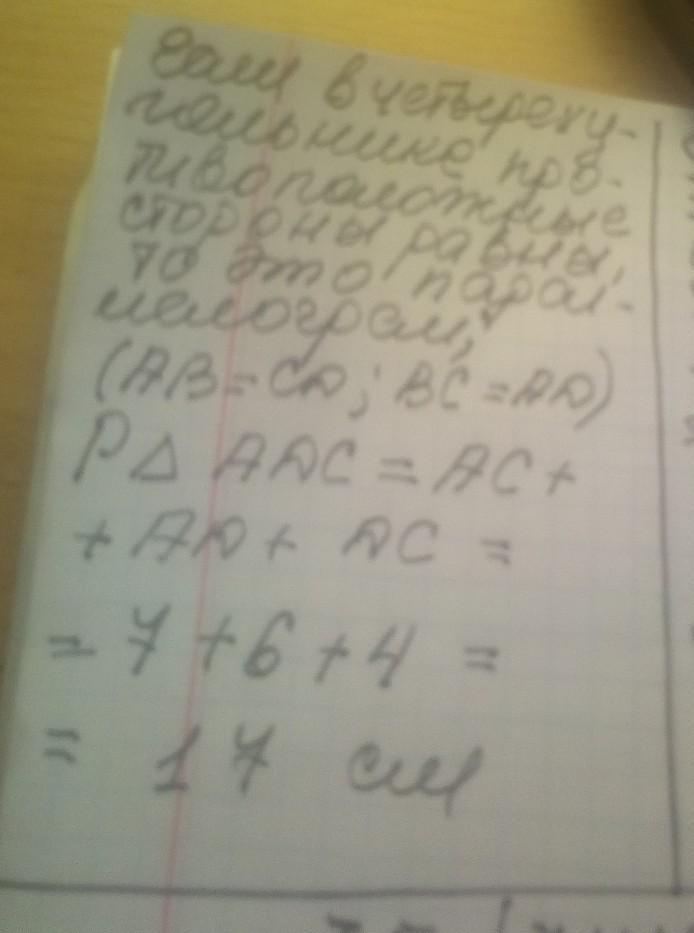 Если в четыреху-
гольнике про-
тивоположные
стороны равны,
то это парал-
лелограм,
(AB = CD; BC = AD)
P△ ADC = AC +
+ AD + DC =
= 7 + 6 + 4 =
= 17 см